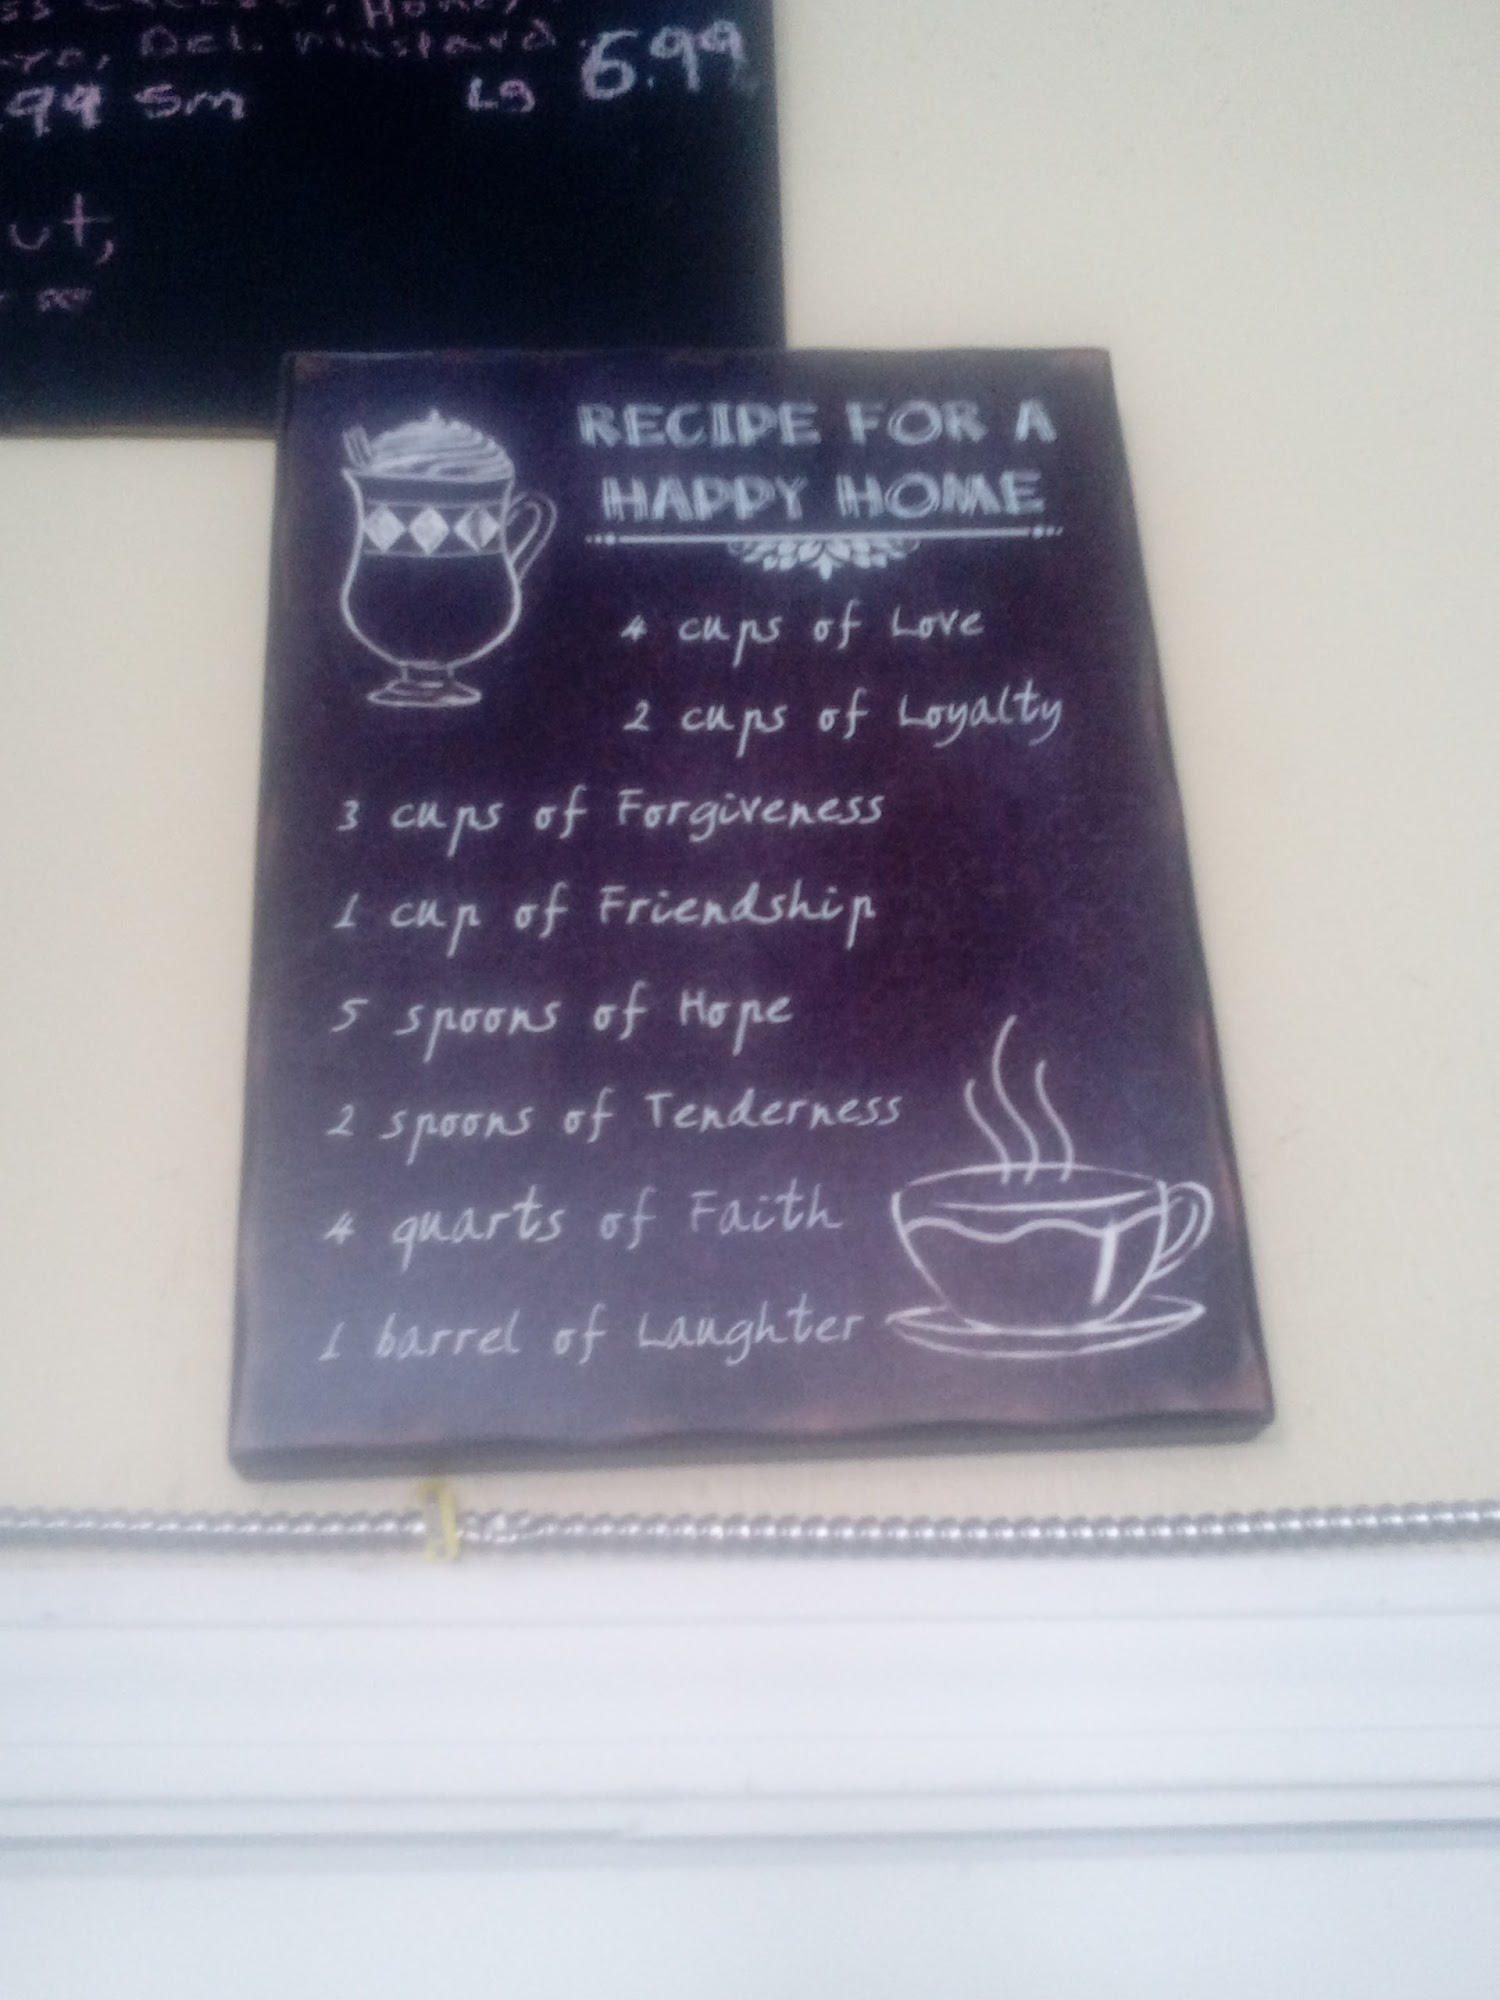 Honey,
Del. mustard
.99 sm Lg 6.99
RECIPE FOR A
HAPPY HOME
4 cups of Love
2 cups of Loyalty
3 cups of Forgiveness
1 cup of Friendship
5 spoons of Hope
2 spoons of Tenderness
4 quarts of Faith
1 barrel of Laughter